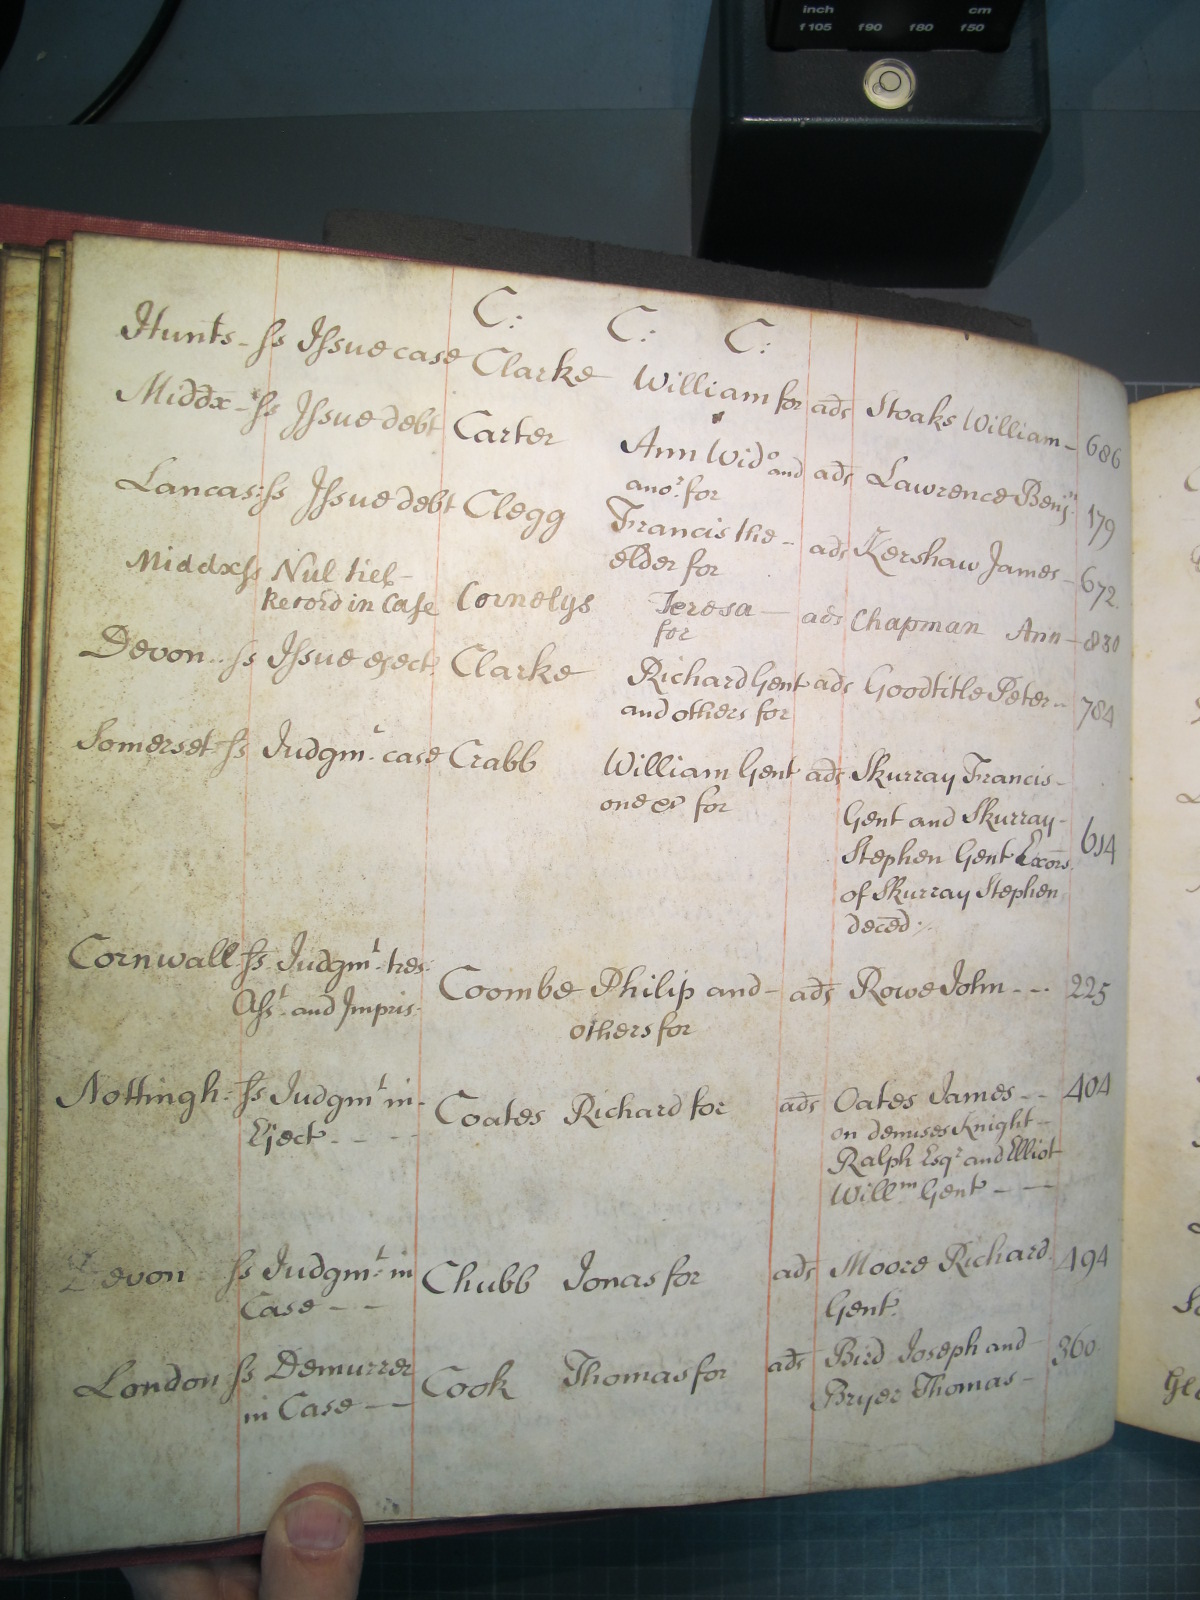 inch cm
f105 f90 f80 f50
C: C: C:
Hunts - ss Issue case Clarke William for ads Stoaks William - 686
Middx - ss Issue debt Carter Ann Wid:o and ads Lawrence Benj:n 179
ano:r for
Lancas: ss Issue debt Clegg Francis the - ads Kershaw James - 672
elder for
Middx ss Nul tiel - Cornelys Teresa - ads Chapman Ann - 830
Record in Case for
Devon .. ss Issue eject: Clarke Richard Gent ads Goodtitle Peter - 784
and others for
Somerset ss Judgm:t case Crabb William Gent ads Skurray Francis - 614
one &c for Gent and Skurray -
Stephen Gent Exors
of Skurray Stephen
deced
Cornwall ss Judgm:t tres: Coombe Philip and - ads Rowe John - - - 225
Ass:t and Impris: others for
Nottingh: ss Judgm:t in - Coates Richard for ads Oates James - - 404
Eject - - - on demises Knight -
Ralph Esq:r and Elliot
Will:m Gent - -
Devon ss Judgm:t in Chubb Jonas for ads Moore Richard 494
Case - - - Gent:
London ss Demurrer Cook Thomas for ads Bird Joseph and 360
in Case - - Bryer Thomas -